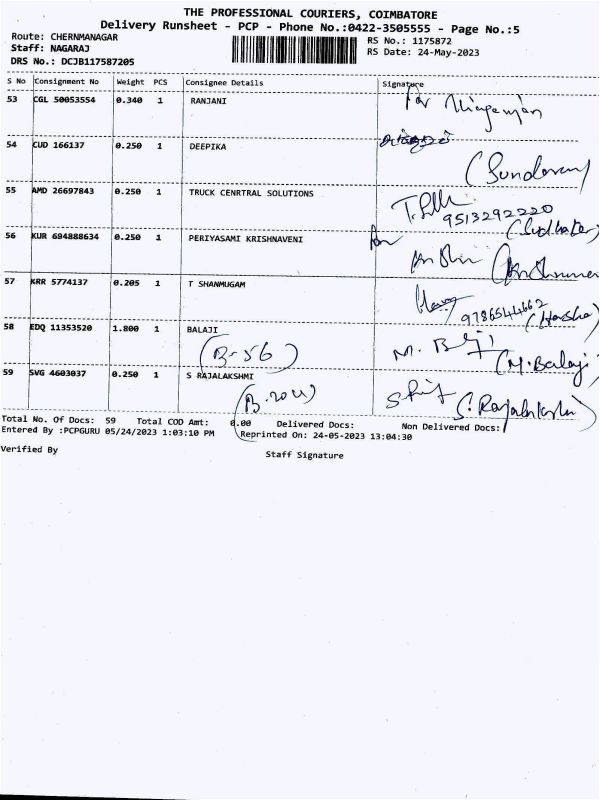 THE PROFESSIONAL COURIERS, COIMBATORE
Delivery Runsheet - PCP - Phone No.:0422-3505555 - Page No.:5
Route: CHERNMANAGAR RS No.: 1175872
Staff: NAGARAJ RS Date: 24-May-2023
DRS No.: DCJB117587205
S No Consignment No Weight PCS Consignee Details Signature
53 CGL 50053554 0.340 1 RANJANI for
54 CUD 166137 0.250 1 DEEPIKA
(Sundaram)
55 AMD 26697843 0.250 1 TRUCK CENRTRAL SOLUTIONS
9513292220
56 KUR 694888634 0.250 1 PERIYASAMI KRISHNAVENI for
57 KRR 5774137 0.205 1 T SHANMUGAM
9786544662 (Harsha)
58 EDQ 11353520 1.800 1 BALAJI
(B-56) M. (M.Balaji)
59 SVG 4603037 0.250 1 S RAJALAKSHMI
(B.204) (S.Rajalakshmi)
Total No. Of Docs: 59 Total COD Amt: 0.00 Delivered Docs: Non Delivered Docs:
Entered By :PCPGURU 05/24/2023 1:03:10 PM Reprinted On: 24-05-2023 13:04:30
Verified By Staff Signature